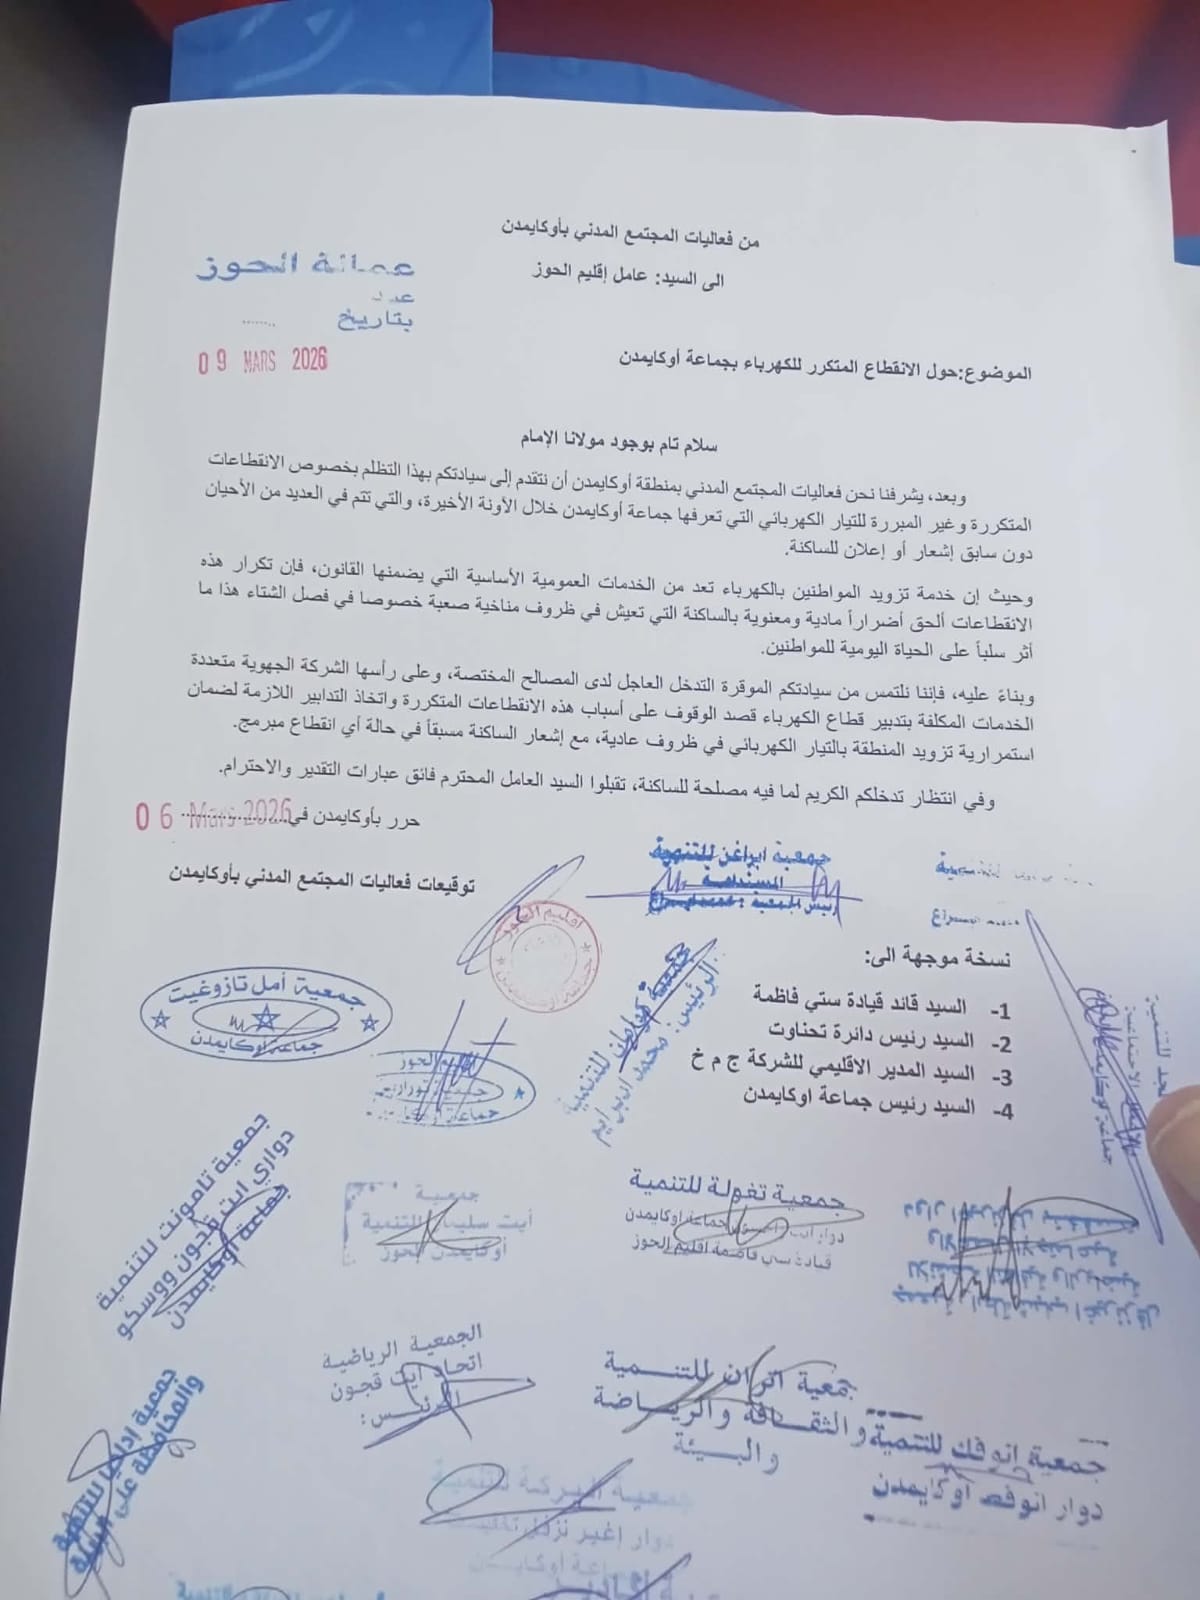 من فعاليات المجتمع المدني بأوكايمدن
الى السيد: عامل إقليم الحوز
عمالة الحوز
عدد
بتاريخ ........
09 MARS 2026
الموضوع:حول الانقطاع المتكرر للكهرباء بجماعة أوكايمدن
سلام تام بوجود مولانا الإمام
وبعد، يشرفنا نحن فعاليات المجتمع المدني بمنطقة أوكايمدن أن نتقدم إلى سيادتكم بهذا التظلم بخصوص الانقطاعات
المتكررة وغير المبررة للتيار الكهربائي التي تعرفها جماعة أوكايمدن خلال الأونة الأخيرة، والتي تتم في العديد من الأحيان
دون سابق إشعار أو إعلان للساكنة.
وحيث إن خدمة تزويد المواطنين بالكهرباء تعد من الخدمات العمومية الأساسية التي يضمنها القانون، فإن تكرار هذه
الانقطاعات ألحق أضراراً مادية ومعنوية بالساكنة التي تعيش في ظروف مناخية صعبة خصوصا في فصل الشتاء هذا ما
أثر سلباً على الحياة اليومية للمواطنين.
وبناءً عليه، فإننا نلتمس من سيادتكم الموقرة التدخل العاجل لدى المصالح المختصة، وعلى رأسها الشركة الجهوية متعددة
الخدمات المكلفة بتدبير قطاع الكهرباء قصد الوقوف على أسباب هذه الانقطاعات المتكررة واتخاذ التدابير اللازمة لضمان
استمرارية تزويد المنطقة بالتيار الكهربائي في ظروف عادية، مع إشعار الساكنة مسبقاً في حالة أي انقطاع مبرمج.
وفي انتظار تدخلكم الكريم لما فيه مصلحة للساكنة، تقبلوا السيد العامل المحترم فائق عبارات التقدير والاحترام.
حرر بأوكايمدن في 06 Mars 2026
توقيعات فعاليات المجتمع المدني بأوكايمدن
جمعية ايراغن للتنمية
المستدامة
اقليم الحوز
نسخة موجهة الى:
1- السيد قائد قيادة ستي فاظمة
2- السيد رئيس دائرة تحناوت
3- السيد المدير الاقليمي للشركة ج م خ
4- السيد رئيس جماعة اوكايمدن
جمعية أمل تازوغيت
جماعة اوكايمدن
للتنمية
الرئيس: محمد
جمعية تامونت للتنمية
دواري ايت قجون ووسكو
جماعة اوكايمدن
جمعية
أيت التنمية
أوكايمدن الحوز
جمعية تغولة للتنمية
جماعة اوكايمدن
قيادة ستي فاضمة اقليم الحوز
الجمعية الرياضية
اتحاد ايت قجون
الرئيس:
جمعية اتران للتنمية
والثقافة والرياضة
والبيئة
جمعية انوفك للتنمية
دوار انوفك اوكايمدن
للتنمية
والمحافظة على البيئة
جمعية البركة للتنمية
دوار
أوكايمدن